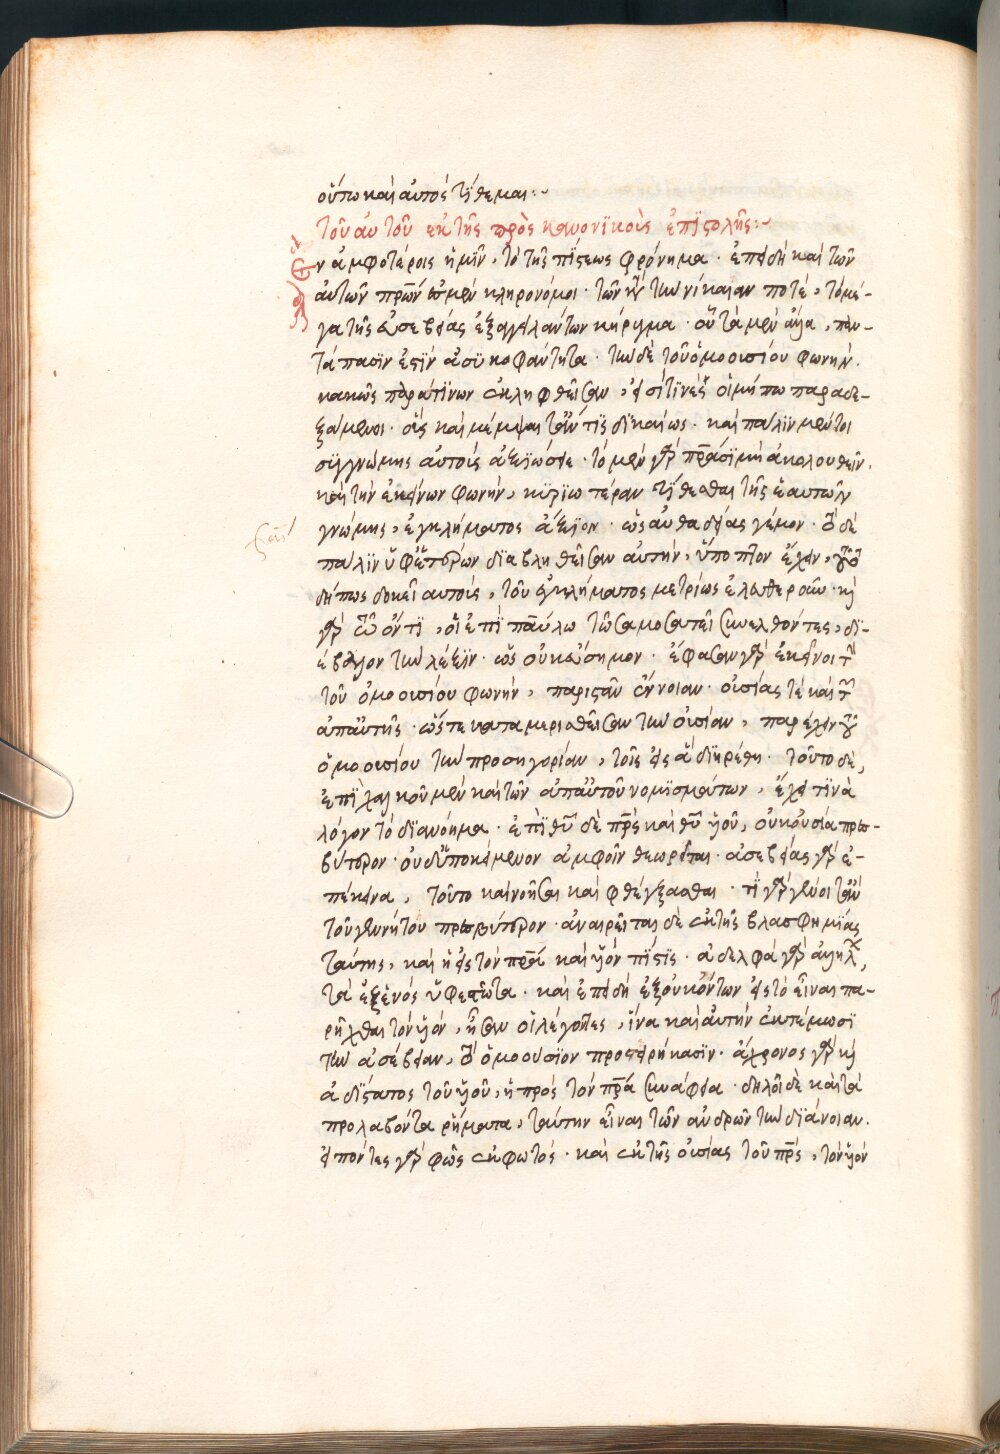 οὕτω καὶ αὐτὸς τίθεμαι :~
Τοῦ αὐτοῦ ἐκ τῆς πρὸς κανονικοὺς ἐπιστολῆς :~
Ἐν ἀμφοτέροις ἡμῖν, τὸ τῆς πίστεως φρόνημα · ἐπειδὴ καὶ τῶν
αὐτῶν πρων ἐσμὲν κληρονόμοι · τῶν κατὰ τὴν νίκαιαν ποτέ, τὸ μέ-
γα τῆς εὐσεβείας ἐξαγγειλάντων κήρυγμα · οὗ τὰ μὲν ἄλλα, παν-
τάπασίν ἐστιν ἀσυκοφάντητα · τὴν δὲ τοῦ ὁμοουσίου φωνὴν ·
κακῶς παρά τινων ἐκληφθεῖσαν, εἰσί τινες οἱ μήπω παραδε-
ξάμενοι · οὓς καὶ μέμψαιτο ἄν τις δικαίως · καὶ πάλιν μέντοι
συγγνώμης αὐτοὺς ἀξιώσειε · τὸ μὲν γὰρ πρασι μὴ ἀκολουθεῖν ·
καὶ τὴν ἐκείνων φωνὴν, κυριωτέραν τίθεσθαι τῆς ἑαυτῶν
γνώμης, ἐγκλήματος ἄξιον · ὡς αὐθαδείας γέμον · τὸ δὲ
πάλιν ὑφ' ἑτέρων διαβληθεῖσαν αὐτὴν, ὕποπτον ἔχειν, τοῦτό
δήπως δοκεῖ αὐτοὺς, τοῦ ἐγκλήματος μετρίως ἐλευθεροῦν · καὶ
γὰρ τῷ ὄντι, οἱ ἐπὶ παύλω τῶ σαμοσατεῖ συνελθόντες, δι-
έβαλον τὴν λέξιν · ὡς οὐκ εὔσημον · ἔφασαν γὰρ ἐκεῖνοι τὴν
τοῦ ὁμοουσίου φωνὴν, παριστᾶν ἔννοιαν · οὐσίας τὲ καὶ τῶν
ἀπ' αὐτῆς · ὥστε καταμερισθεῖσαν τὴν οὐσίαν, παρέχειν τοῦ
ὁμοουσίου τὴν προσηγορίαν, τοῖς εἰς ἃ διῃρέθη · τοῦτο δὲ,
ἐπὶ χαλκοῦ μὲν καὶ τῶν ἀπ' αὐτοῦ νομισμάτων, ἔχει τινὰ
λόγον τὸ διανόημα · ἐπὶ θυ δὲ πρς καὶ θυ υἱοῦ, οὐκ οὐσία πρεσ-
βύτερον · οὐδ' ὑποκείμενον ἀμφοῖν θεωρεῖται · ἀσεβείας γὰρ ἐ-
πέκεινα, τοῦτο καὶ νοῆσαι καὶ φθέγξασθαι · τί γὰρ γένοιτο ἂν
τοῦ γεννήτου πρεσβύτερον · ἀναιρεῖται δὲ ἐκ τῆς βλασφημίας
ταύτης, καὶ ἡ εἰς τὸν πρα καὶ υἱὸν πίστις · ἀδελφὰ γὰρ ἀλλήλοις,
τὰ ἐξ ἑνὸς ὑφεστῶτα · καὶ ἐπειδὴ ἐξ οὐκ ὄντων εἰς τὸ εἶναι πα-
ρῆχθαι τὸν υἱόν, ἦσαν οἱ λέγοντες, ἵνα καὶ αὐτὴν ἐκτέμωσι
τὴν ἀσέβειαν, τὸ ὁμοούσιον προσειρήκασιν · ἄχρονος γὰρ καὶ
ἀδιάστατος τοῦ υἱοῦ, ἡ πρὸς τὸν πρα συνάφεια · δηλοῖ δὲ καὶ τὰ
προλαβόντα ῥήματα, ταύτην εἶναι τῶν ἀνδρῶν τὴν διάνοιαν ·
εἰπόντες γὰρ φῶς ἐκ φωτός · καὶ ἐκ τῆς οὐσίας τοῦ πρς, τὸν υἱὸν